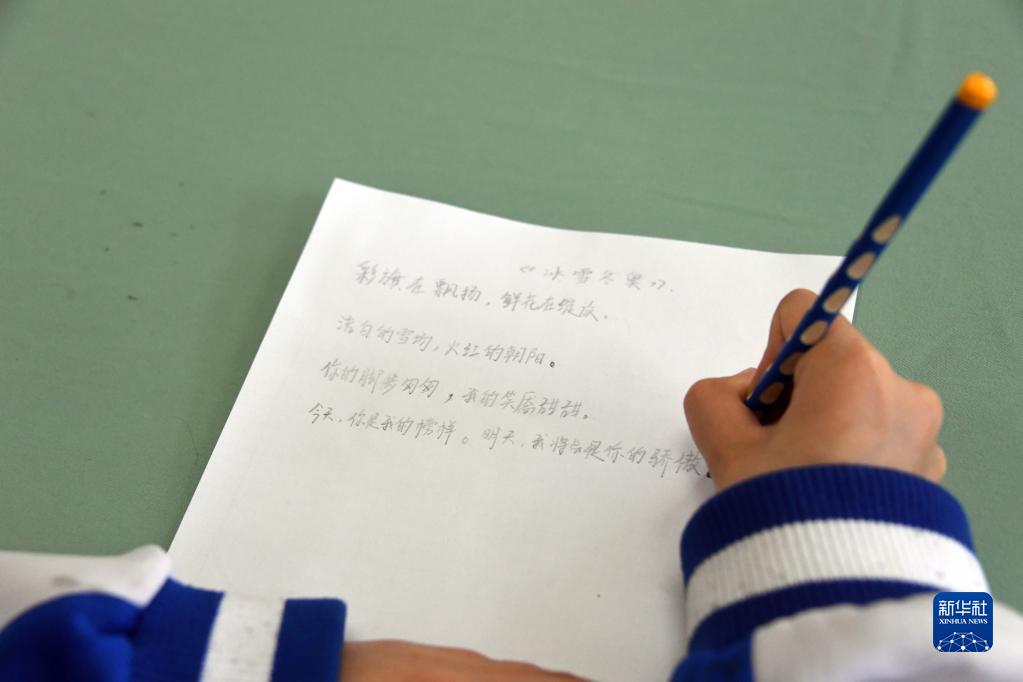 《冰雪冬奥》.
彩旗在飘扬，鲜花在绽放。
洁白的雪场，火红的朝阳。
你的脚步匆匆，我的笑靥甜甜。
今天，你是我的榜样。明天，我将是你的骄傲。
新华社
XINHUA NEWS